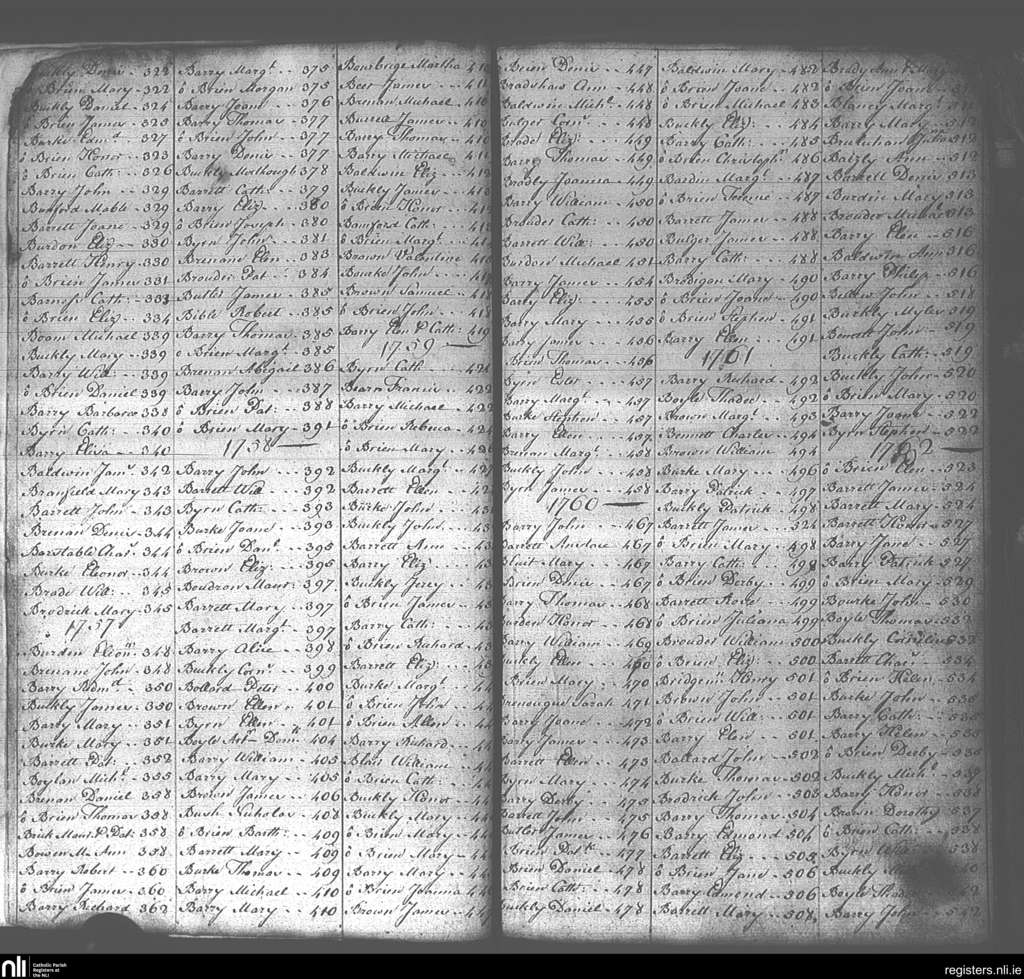 Buckly Denis - 322
ô Brien Mary - 322
Buckly Daniel - 324
ô Brien James - 325
Burke Edm.d 327
ô Brien Honor - 323
ô Brien Cath: - 326
Barry John - 329
Bunford Mable - 329
Barrett Joane - 329
Burdon Eliz - 330
Barrett Henry - 330
ô Brien James 331
Cath: - 333
ô Brien Eliz - 334
Boom Michael 339
Buckly Mary - 339
Barry Will: - 339
ô Brien Daniel 339
Barry Barbara 338
Byrn Cath: - 340
Barry Eliza - 340
Baldwin Jam.s 342
Branfield Mary 343
Barrett John - 343
Brenan Denis - 344
Barstable Char.s 344
Burke Eleonor - 344
Brade Will: - 345
Brodrick Mary - 345
1757
Burden - 348
Brenane John - 348
Barry Edm.d - 350
Buckly James - 350
Barry Mary - 351
Burke Mary - 351
Barrett Pat: - 352
Boylan Mich.l - 355
Brenan Daniel - 358
ô Brien Thomas 358
Brick Maur: & Pat: 358
Bowen M. Ann - 358
Barry Robert - 360
ô Brien James - 360
Barry Richard 362
Barry Marg.t - 375
ô Brien Morgan 375
Barry Joan - 376
Barry Thomas - 377
ô Brien John - 377
Barry Denis - 377
Buckly 378
Barrett Cath: - 379
Barry Eliz - 380
ô Brien Joseph - 380
Byrn John - 381
Brenane Elen - 383
Brouder Pat - 384
Butler James - 385
Bible Robert - 385
Barry Thomas - 385
ô Brien Marg.t - 385
Brenan Abigail 386
Barry John - 387
ô Brien Pat: - 388
ô Brien Mary - 391
1758
Barry John - 392
Barrett Will - 392
Byrn Cath: - 393
Burke Joane - 393
ô Brien Dan.l - 395
Brown Eliz: - 395
Boudron Maur: 397
Barrett Mary - 397
Barrett Marg.t - 397
Barry Alice - 398
Buckly Cor.s - 399
Bollard Peter - 400
Brown Ellen - 401
Byrn Ellen - 401
Boyle - 404
Barry William - 405
Barry Mary - 405
Brown James - 406
Bush Nicholas - 408
ô Brien Barth: - 409
Barrett Mary - 409
Burke Thomas - 409
Barry Michael - 410
Barry Mary - 410
Bourbrige Martha
Beer James
Brenan Michael
Burrell James
Barry Thomas
Barry Michael
Baldwin Eliz
Buckly James
ô Brien Honor
Bamford Cath:
ô Brien Marg.t
Brown Valentine
Bourke John
Brown Samuel
ô Brien John
Barry Elen & Cath: - 419
1759
Byrn Cath
Bears Francis - 422
Barry Michael - 422
ô Brien Rebeca
ô Brien Mary
Buckly Marg.t
Barrett Ellen
Burke John
Buckly John
Barrett Ann
Barry Eliz
Buckly Jerey
ô Brien James
Barry Cath:
ô Brien Richard
Barrett Eliz:
Burke Marg.t
ô Brien John
ô Brien Allen
Barry Richard
William
ô Brien Cath:
Buckly Honor
Buckly Mary
ô Brien Mary
ô Brien Mary
Barry Mary
ô Brien Joanna
Brown James
Brien Denis - 447
Bradshaw Ann - 448
Baldwin Mich.l - 448
Bulger Corn.s - 448
Brade Eliz: - 449
Barry Thomas - 449
Bradly Joanna - 449
Barry William - 450
Brouder Cath: - 450
Barrett Will: - 450
Burdon Michael - 451
Barry James - 454
Barry Eliz: - 455
Barry Mary - 455
Barry James - 456
Brien Thomas - 456
Byrn Ester - 457
Barry Marg.t - 457
Burke Stephen - 457
Barry Ellen - 457
Brenan Marg.t - 458
Buckly John - 458
Byrn James - 458
1760
Barry John - 467
Barrett - 467
Mary - 467
Brien Denis - 467
Barry Thomas - 468
Burden Honor - 468
Barry William - 469
Buckly Ellen - 460
Brien Mary - 470
Sarah 471
Barry Joane - 472
Barry James - 473
Barrett Ellen - 473
Byrn Mary - 474
Barry Derby - 475
Barrett John - 475
Butler James - 476
Brien Pat.k - 477
Brien Daniel - 478
Brien Cath: - 478
Buckly Daniel - 478
Baldwin Mary - 482
ô Brien Joane - 482
ô Brien Michael 483
Buckly Eliz: - 484
Barry Cath: - 485
ô Brien Christoph.r 486
Bardin Marg.t - 487
ô Brien Terence - 487
Barrett James - 488
Bulger James - 488
Barry Cath: - 488
Brodigon Mary - 490
ô Brien Joane - 490
ô Brien Stephen - 491
Barry Elen - 491
1761
Barry Richard - 492
Boyle Thadee - 492
Brown Marg.t - 493
Bennett Charles - 494
Brown William 494
Burke Mary - 496
Barry Patrick - 497
Buckly Patrick 498
Barrett James - 524
ô Brien Mary - 498
Barry Cath: - 498
ô Brien Derby - 499
Barrett Rose - 499
ô Brien Juliana 499
Brouder William 500
ô Brien Eliz: - 500
Bridgen.n Henry 501
Brown John - 501
ô Brien Will: - 501
Barry Elen - 501
Ballard John - 502
Burke Thomas - 502
Brodrick John - 503
Barry Thomas - 504
Barry Edmond 504
Barrett Eliz - 505
ô Brien Jane - 506
Barry Edmond - 506
Barrett Mary - 508
Brady Ann & Mary
ô Brien Joane
Blaney Marg.t
Barry Mary
512
Baizly Ann - 512
Burnell Denis 513
Burdin Mary 513
Brouder Michael 513
Barry Elen - 516
Baldwin Ann 516
Barry Philip - 516
Bellew John - 518
Buckly Myles 519
Bennett John - 519
Buckly Cath: - 519
Buckly John - 520
ô Brien Mary - 520
Barry Joane - 522
Byrn Stephen - 522
1762
ô Brien Elen - 523
Barrett James - 524
Barrett Mary - 524
Barrett Honor - 527
Barry Jane - 527
Barry Patrick - 527
ô Brien Mary - 529
Bourke John - 530
Boyle Thomas - 532
Buckly Cornelius 532
Barrett Char.s - 534
ô Brien Helen - 534
Burke John - 535
Barry Cath: - 535
Barry Helen - 535
ô Brien Derby - 535
Buckly Mich.l - 537
Barry Honor - 538
Brown Dorothy 537
ô Brien Cath: - 538
Byrn - 538
Buckly
Boyle
Barry John - 542
nli
Catholic Parish
Registers at
the NLI
registers.nli.ie